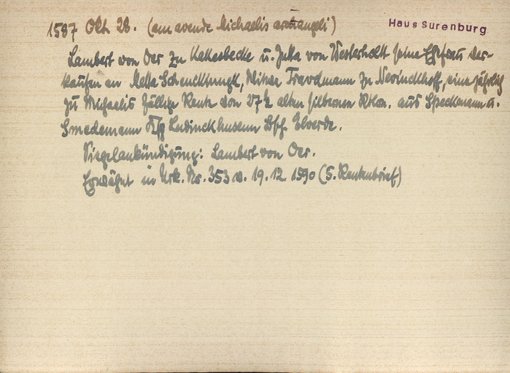 1587 Okt 28. (am avende Michaelis archangeli)
Haus Surenburg
Lambert von Oer zu Kakesbecke u. Jutta von Westerholt seine Ehefrau ver-
kaufen an Mette Witwe zu eine jährlich
zu Michaelis fällige Rente von 27½ alten silbernen Rtlrn. aus Speckmann u.
Smedemann Ksp Ludinckhusenn Bsch. Elverde.
Siegelankündigung: Lambert von Oer.
Erwähnt in Urk. Nr. 353 v. 19. 12. 1590 (5. Rentenbrief)